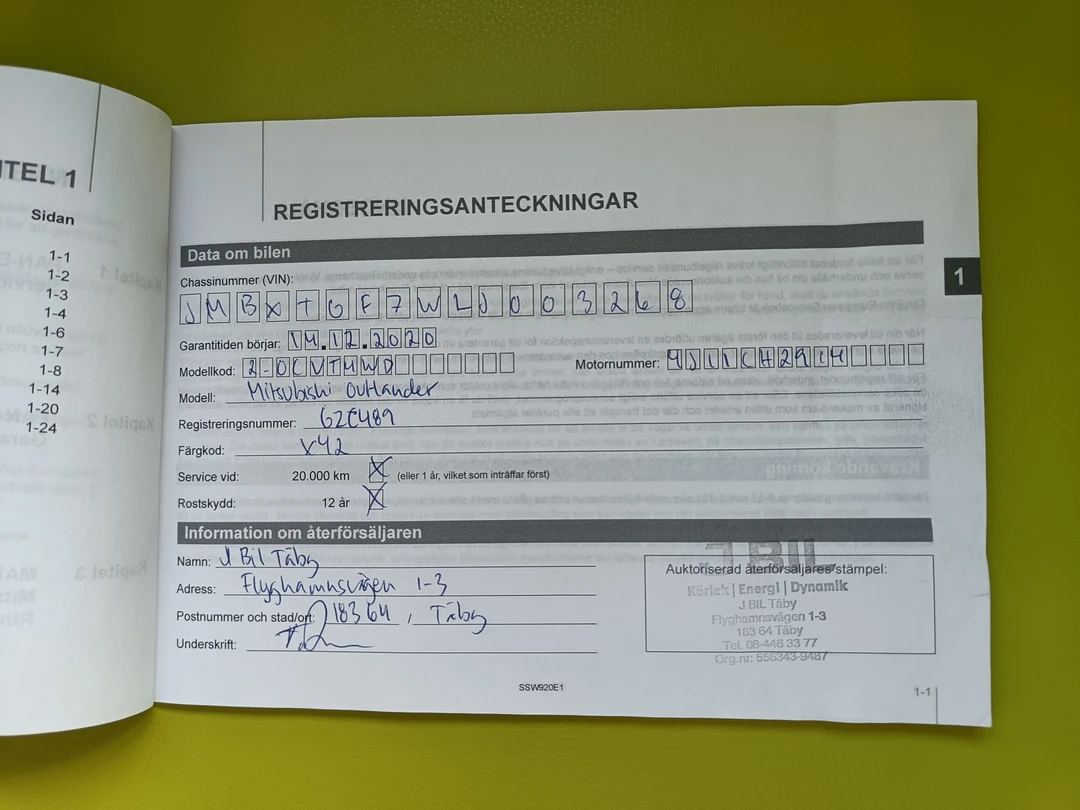 ITEL 1
Sidan
1-1
1-2
1-3
1-4
1-6
1-7
1-8
1-14
1-20
1-24
REGISTRERINGSANTECKNINGAR
Data om bilen
1
Chassinummer (VIN):
JMBXTGF7WLJ003268
Garantitiden börjar: 14.12.2020
Modellkod: 2-0CVT4WD Motornummer: 4J11CH2914
Modell: Mitsubishi Outlander
Registreringsnummer: GZC489
Färgkod: X42
Service vid: 20.000 km X (eller 1 år, vilket som inträffar först)
Rostskydd: 12 år X
Information om återförsäljaren
Namn: J Bil Täby
Adress: Flyghamnsvägen 1-3
Postnummer och stad/ort: 18364, Täby
Underskrift:
J BIL
Auktoriserad återförsäljares stämpel:
Kärlek | Energi | Dynamik
J BIL Täby
Flyghamnsvägen 1-3
183 64 Täby
Tel. 08-446 33 77
Org.nr: 556343-9487
SSW920E1
1-1